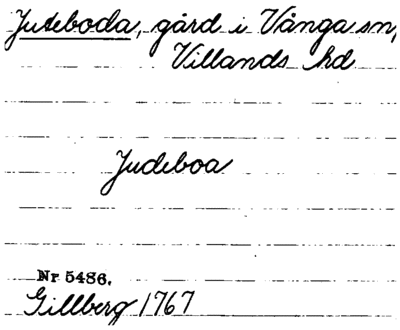 Juteboda, gård i Vånga sn,
Villands hd
Judeboa
Nr 5486.
Gillberg 1767